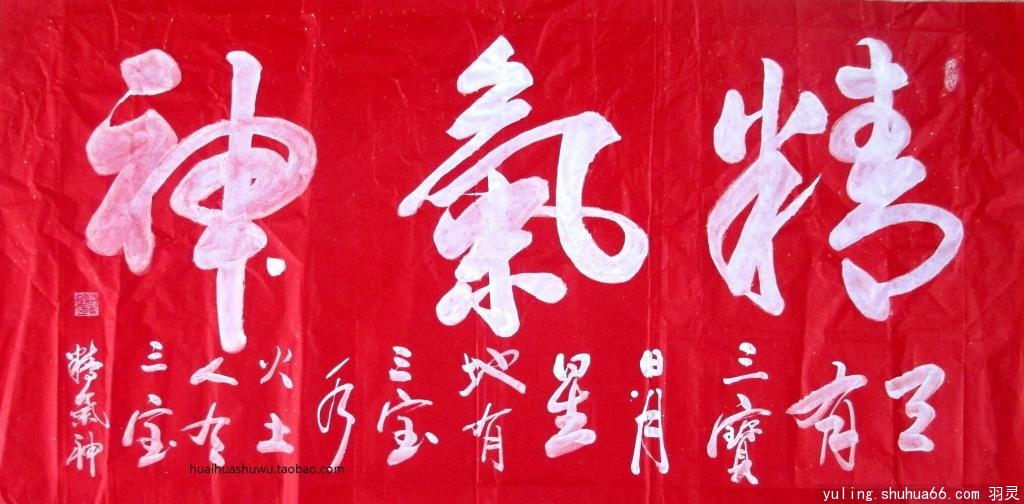 精氣神
天有
三寶
日月
星
地有
三宝
水
火土
人有
三宝
精氣神
huaihuashuwu.taobao.com
yuling.shuhua66.com 羽灵